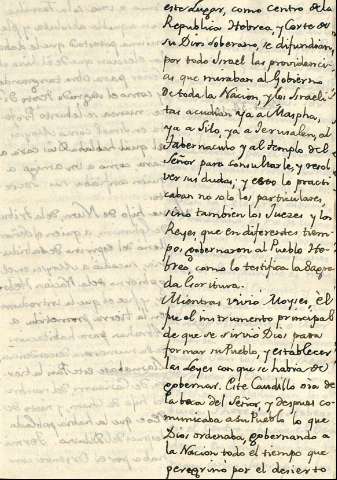 este lugar, como centro de la
Republica Hebrea, y Corte de
su Dios soberano, se difundian,
por todo Israel las providenci-
as que miraban al Gobierno
de toda la Nacion, y los Israeli-
tas acudian ya a Maspha,
ya a Silo, ya a Jerusalem, al
Tabernaculo y al templo del
Señor para consultarle, y resol-
ver sus dudas, y esto lo practi-
caban no solo los particulares,
sino tambien los Juezes y los
Reyes que en diferentes tiem-
pos, gobernaron al Pueblo He-
breo, como lo testifica la Sagra-
da Escritura.
Mientras vivió Moyses, èl
fue el instrumento principal
de que se sirvió Dios para
formar su Pueblo, y establecer
las Leyes con que se habia de
gobernar. Este Caudillo oia de
la boca del Señor, y despues co-
municaba a su Pueblo lo que
Dios ordenaba, gobernando a
la Nacion todo el tiempo que
peregrinó por el desierto